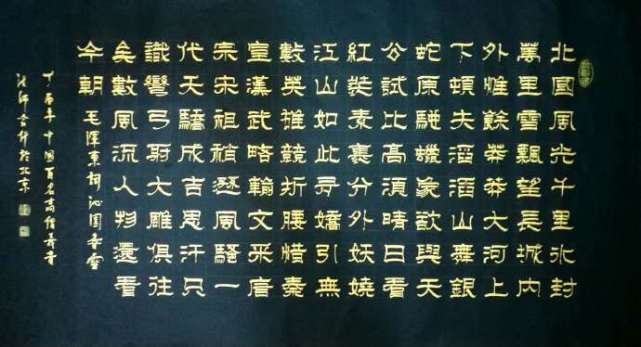 北國風光千里冰封
萬里雪飄望長城內
外惟餘莽莽大河上
下頓失滔滔山舞銀
蛇原馳蠟象欲與天
公試比高須晴日看
紅裝素裹分外妖嬈
江山如此多嬌引無
數英雄競折腰惜秦
皇漢武略輸文采唐
宗宋祖稍遜風騷一
代天驕成吉思汗只
識彎弓射大雕俱往
矣數風流人物還看
今朝 毛澤東詞沁園春雪
年中國百名高僧
於北京